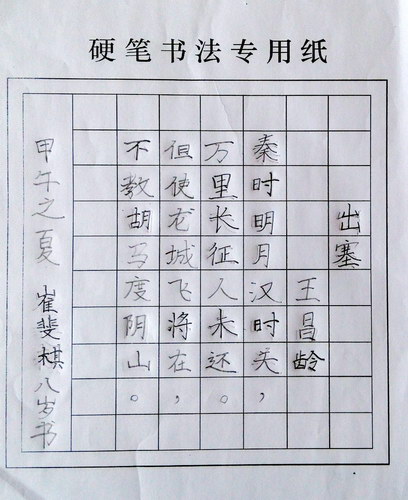 硬笔书法专用纸
出塞
王昌龄
秦时明月汉时关，
万里长征人未还。
但使龙城飞将在，
不教胡马度阴山。
甲午之夏 崔斐棋八岁书